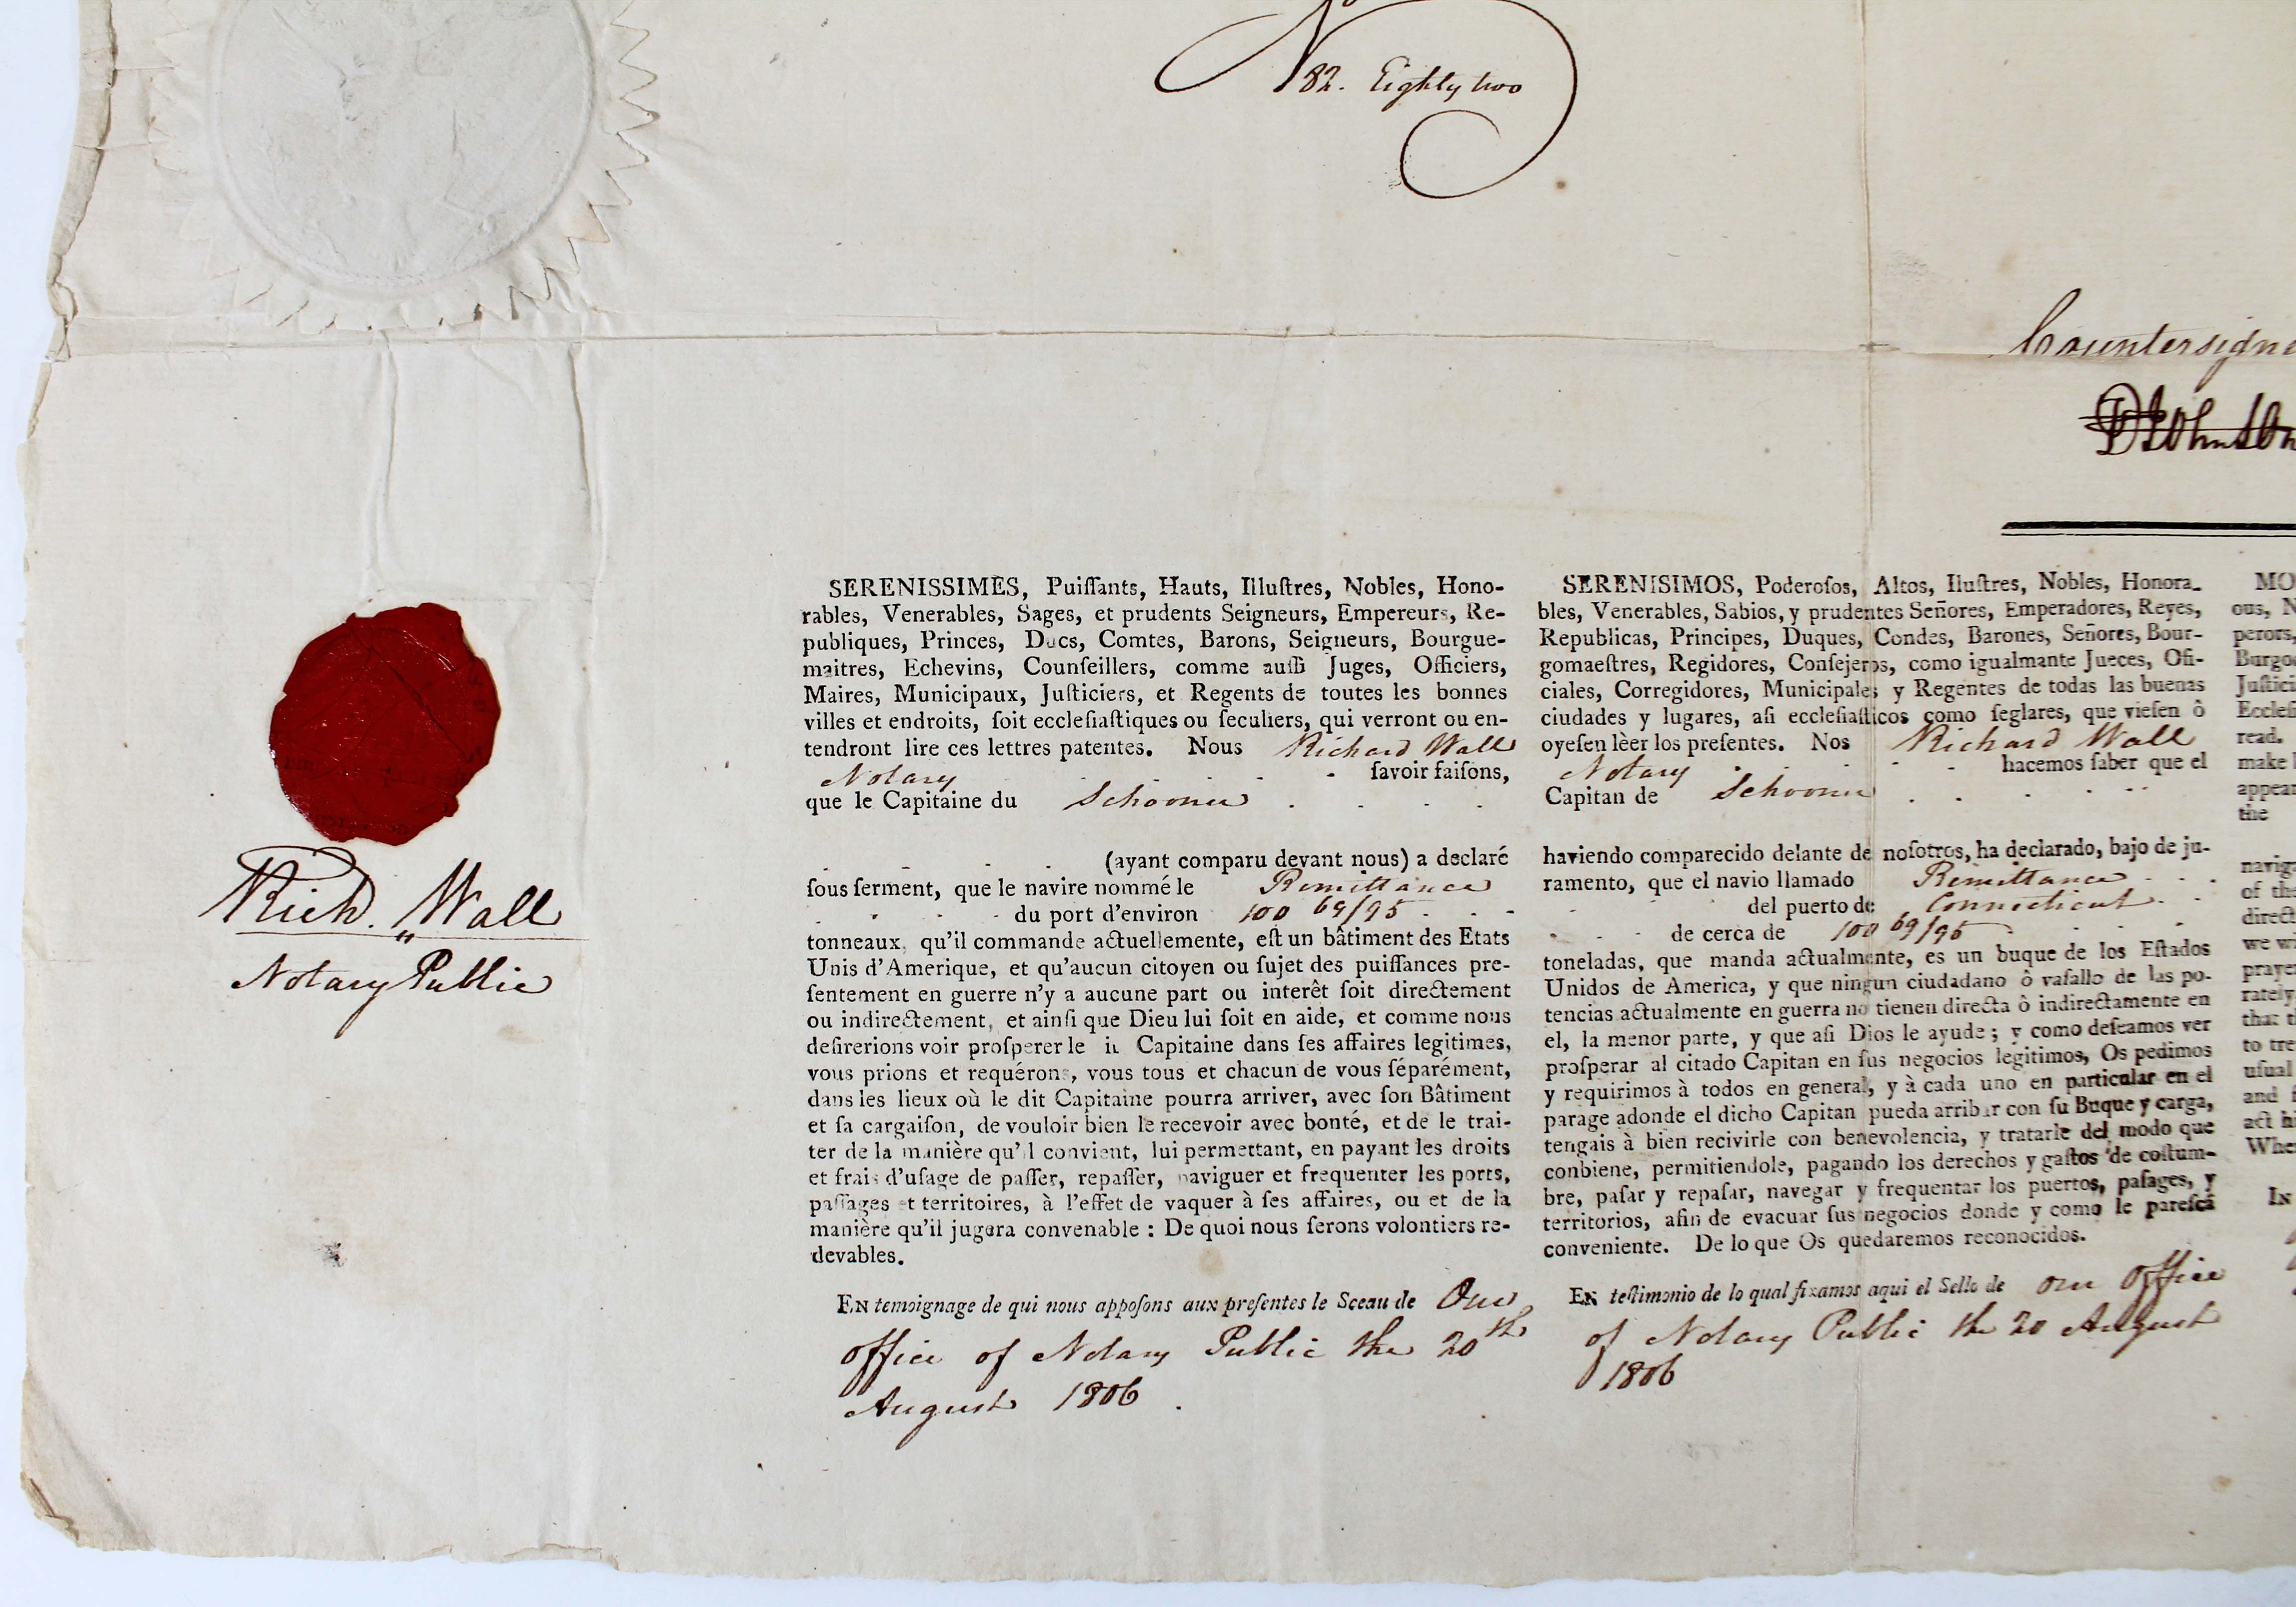 No 82. Eighty two
Countersigne
DJohnson
Rich.d Wall
Notary Public
SERENISSIMES, Puiſſants, Hauts, Illuſtres, Nobles, Hono-
rables, Venerables, Sages, et prudents Seigneurs, Empereurs, Re-
publiques, Princes, Ducs, Comtes, Barons, Seigneurs, Bourgue-
maitres, Echevins, Counſeillers, comme auſſi Juges, Officiers,
Maires, Municipaux, Juſticiers, et Regents de toutes les bonnes
villes et endroits, ſoit eccleſiaſtiques ou ſeculiers, qui verront ou en-
tendront lire ces lettres patentes. Nous Richard Wall
Notary ſavoir faiſons,
que le Capitaine du Schooner
(ayant comparu devant nous) a declaré
ſous ſerment, que le navire nommé le Remittance
du port d'environ 100 69/95
tonneaux, qu'il commande actuellemente, eſt un bâtiment des Etats
Unis d'Amerique, et qu'aucun citoyen ou ſujet des puiſſances pre-
ſentement en guerre n'y a aucune part ou interêt ſoit directement
ou indirectement, et ainſi que Dieu lui ſoit en aide, et comme nous
deſirerions voir proſperer le it Capitaine dans ſes affaires legitimes,
vous prions et requérons, vous tous et chacun de vous ſéparément,
dans les lieux où le dit Capitaine pourra arriver, avec ſon Bâtiment
et ſa cargaiſon, de vouloir bien le recevoir avec bonté, et de le trai-
ter de la manière qu'il convient, lui permettant, en payant les droits
et frais d'uſage de paſſer, repaſſer, naviguer et frequenter les ports,
paſſages et territoires, à l'effet de vaquer à ſes affaires, ou et de la
manière qu'il jugera convenable : De quoi nous ſerons volontiers re-
devables.
EN temoignage de qui nous appoſons aux preſentes le Sceau de Our
office of Notary Public the 20th
August 1806.
SERENISIMOS, Poderoſos, Altos, Iluſtres, Nobles, Honora-
bles, Venerables, Sabios, y prudentes Señores, Emperadores, Reyes,
Republicas, Principes, Duques, Condes, Barones, Señores, Bour-
gomaeſtres, Regidores, Conſejeros, como igualmante Jueces, Ofi-
ciales, Corregidores, Municipales y Regentes de todas las buenas
ciudades y lugares, aſi eccleſiaſticos como ſeglares, que vieſen ò
oyeſen lèer los preſentes. Nos Richard Wall
Notary hacemos ſaber que el
Capitan de Schooner
haviendo comparecido delante de noſotros, ha declarado, bajo de ju-
ramento, que el navio llamado Remittance
del puerto de Connecticut
de cerca de 100 69/95
toneladas, que manda actualmente, es un buque de los Eſtados
Unidos de America, y que ningun ciudadano ò vaſallo de las po-
tencias actualmente en guerra no tienen directa ò indirectamente en
el, la menor parte, y que aſi Dios le ayude; y como deſeamos ver
proſperar al citado Capitan en ſus negocios legitimos, Os pedimos
y requirimos à todos en general, y à cada uno en particular en el
parage adonde el dicho Capitan pueda arribar con ſu Buque y carga,
tengais à bien recivirle con benevolencia, y tratarle del modo que
conbiene, permitiendole, pagando los derechos y gaſtos de coſtum-
bre, paſar y repaſar, navegar y frequentar los puertos, paſages, y
territorios, afin de evacuar ſus negocios donde y como le pareſcá
conveniente. De lo que Os quedaremos reconocidos.
EN teſtimonio de lo qual fixamos aqui el Sello de our office
of Notary Public the 20 August
1806
MO
ous, N
perors,
Burgo
Juſtici
Eccleſi
read.
make
appear
the
naviga
of the
direct
we wi
prayer
rately
that t
to tre
uſual
and f
act hi
Wher
IN